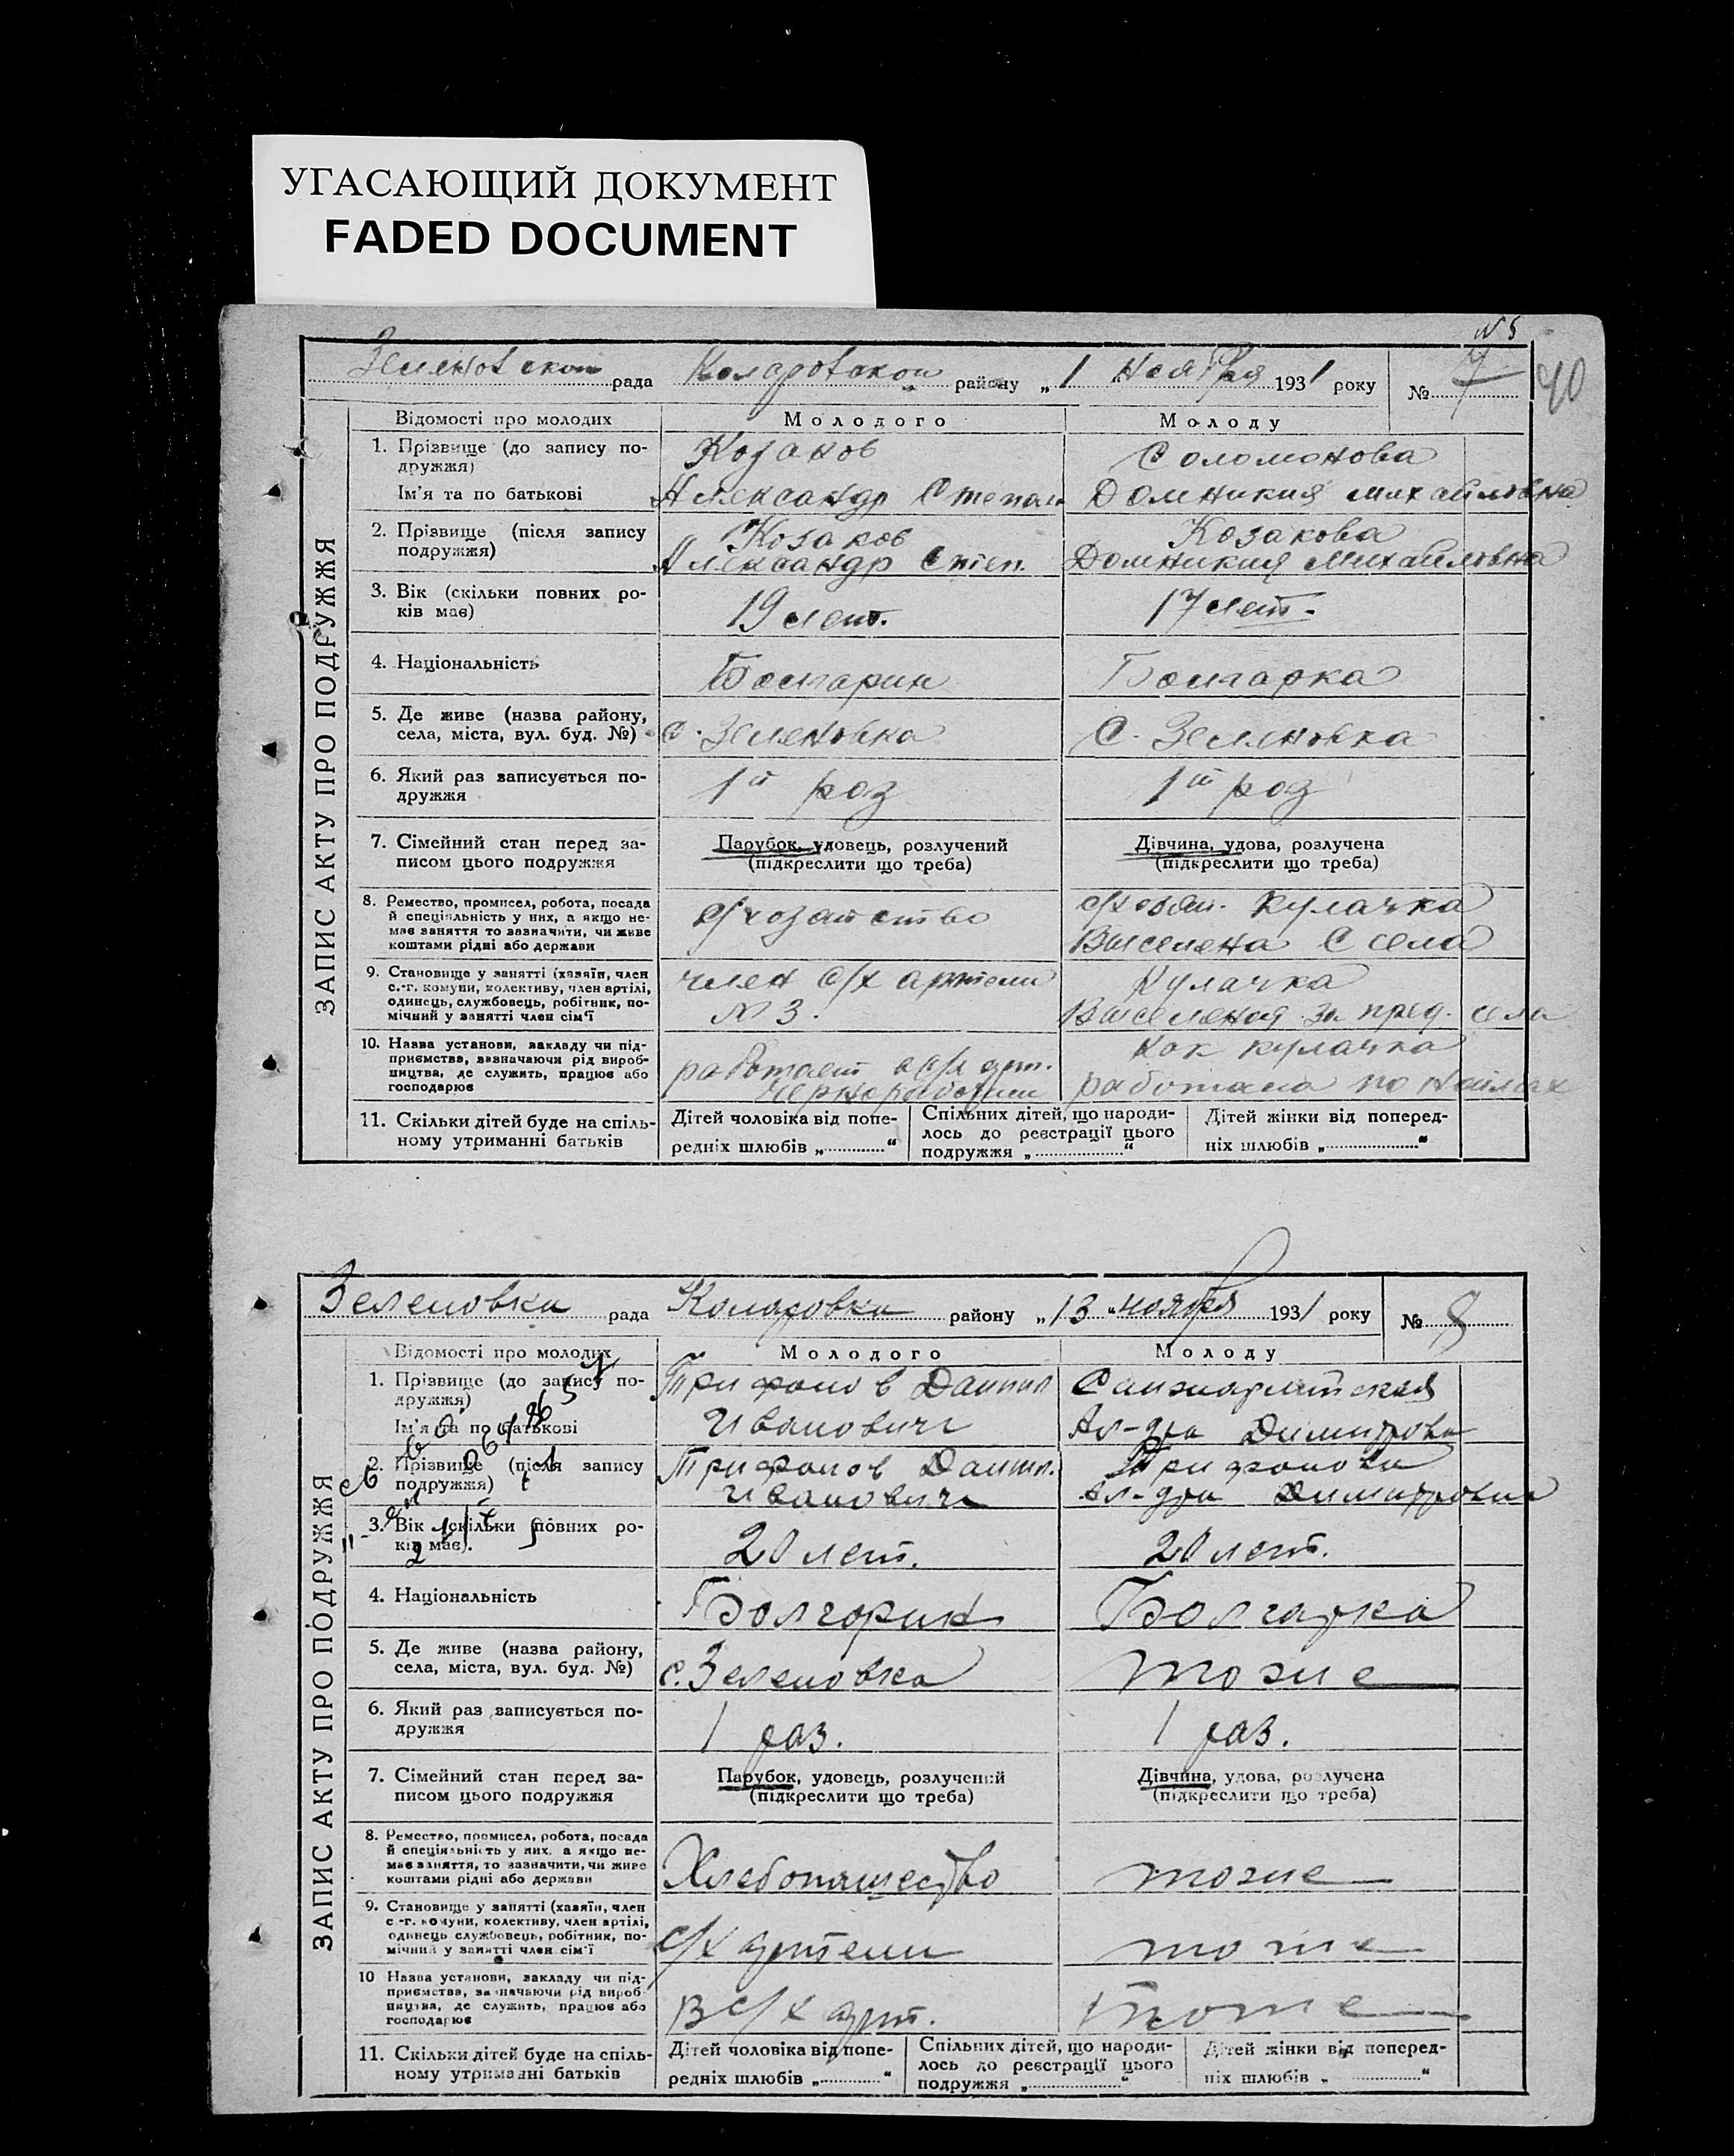 УГАСАЮЩИЙ ДОКУМЕНТ
FADED DOCUMENT
№ 5
Зеленовской рада Коларовокой району „1 „ Ноября 1931 року № 7
40
ЗАПИС АКТУ ПРО ПОДРУЖЖЯ
Відомості про молодих Молодого Молоду
1. Прізвище (до запису по-
дружжя) Козаков Соломонова
Ім'я та по батькові Александр Степан Домникия Михайловна
2. Прізвище (після запису
подружжя) Козаков Козакова
Александр Степ. Домникия Михайловна
3. Вік (скільки повних ро-
ків має) 19 лет. 17 лет.
4. Національність Болгарин Болгарка
5. Де живе (назва району,
села, міста, вул. буд. №) с. Зеленовка С. Зеленовка
6. Який раз записується по-
дружжя 1й раз 1й раз
7. Сімейний стан перед за-
писом цього подружжя
Парубок, удовець, розлучений
(підкреслити що треба)
Дівчина, удова, розлучена
(підкреслити що треба)
8. Ремество, промисел, робота, посада
й спеціяльність у них, а якщо не-
має заняття то зазначити, чи живе
коштами рідні або держави
с/хозяйство
с/хозяй. Кулачка
Выселена С села
9. Становище у занятті (хазяїн, член
с.-г. комуни, колективу, член артілі,
одинець, службовець, робітник, по-
мічний у занятті член сім'ї
член с/х артели
№ 3.
Кулачка
Выселеная за пред. села
10. Назва установи, закладу чи під-
приємства, зазначаючи рід вироб-
ництва, де служить, працює або
господарює
работает в с/х арт.
Чернорабочим
Как кулачка
работала по наймах
11. Скільки дітей буде на спіль-
ному утриманні батьків
Дітей чоловіка від попе-
редніх шлюбів „.............“
Спільних дітей, що народи-
лось до реєстрації цього
подружжя „.................“
Дітей жінки від поперед-
ніх шлюбів „.................“
Зеленовка рада Коларовка району „13 “ ноября 1931 року № 8
ЗАПИС АКТУ ПРО ПОДРУЖЖЯ
Відомості про молодих Молодого Молоду
1. Прізвище (до запису по-
дружжя) Трифонов Даниил
Ім'я та по батькові Иванович Ал-дра Димитрова
2. Прізвище (після запису
подружжя) Трифонов Даниил. Трифонова
Иванович Ал-дра Димитровна
3. Вік (скільки повних ро-
ків має). 20 лет. 20 лет.
4. Національність Болгорин Болгарка
5. Де живе (назва району,
села, міста, вул. буд. №) с. Зеленовка тоже
6. Який раз записується по-
дружжя 1 раз. 1 раз.
7. Сімейний стан перед за-
писом цього подружжя
Парубок, удовець, розлучений
(підкреслити що треба)
Дівчина, удова, розлучена
(підкреслити що треба)
8. Ремество, промисел, робота, посада
й спеціяльність у них, а якщо не-
має заняття, то зазначити, чи живе
коштами рідні або держави
Хлебопашество тоже
9. Становище у занятті (хазяїн, член
с.-г. комуни, колективу, член артілі,
одинець службовець, робітник, по-
мічний у занятті член сім'ї
с/х артели тоже
10 Назва установи, закладу чи під-
приємства, зазначаючи рід вироб-
ництва, де служить, працює або
господарює
В с/х арт. тоже
11. Скільки дітей буде на спіль-
ному утриманні батьків
Дітей чоловіка від попе-
редніх шлюбів „.............“
Спільних дітей, що народи-
лось до реєстрації цього
подружжя „.................“
Дітей жінки від поперед-
ніх шлюбів „ .............“